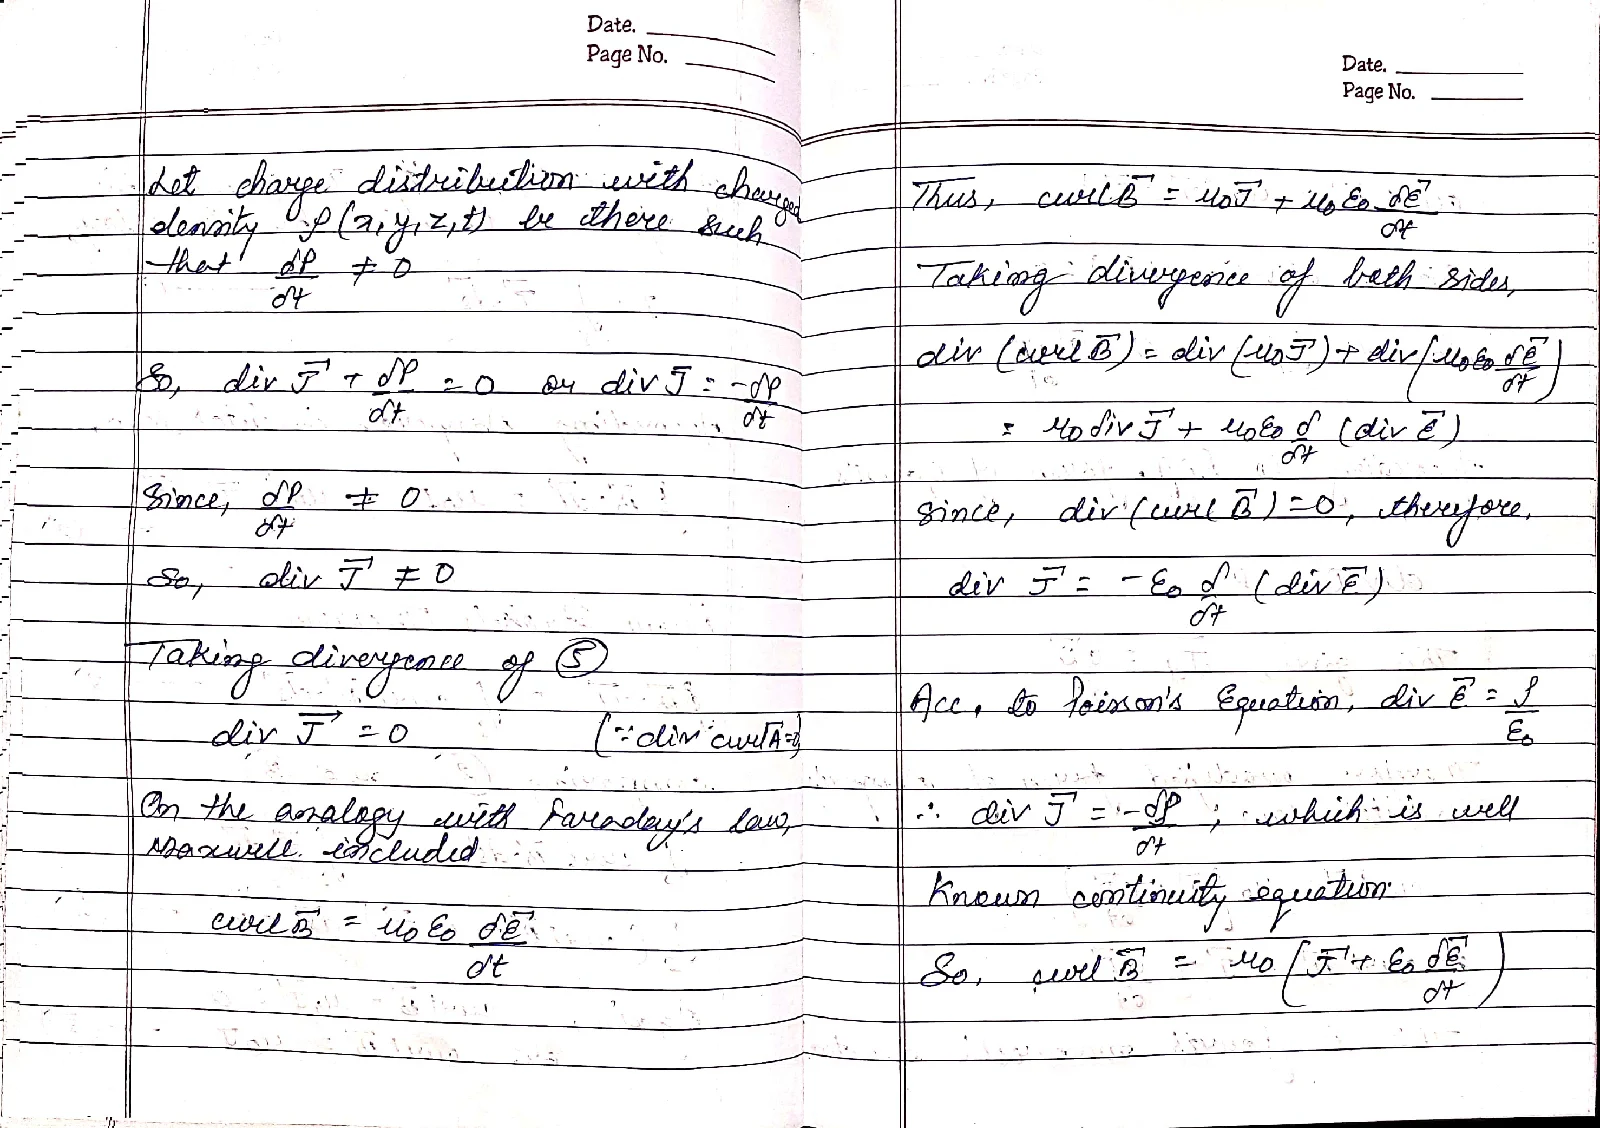 Date.
Page No.
Let charge distribution with charged
density ρ(x,y,z,t) be there such
that ∂ρ/∂t ≠ 0
So, div J⃗ + ∂ρ/∂t = 0 or div J⃗ = -∂ρ/∂t
Since, ∂ρ/∂t ≠ 0
So, div J⃗ ≠ 0
Taking divergence of ⑤
div J⃗ = 0 (∵ div curl A⃗ = 0)
On the analogy with Faraday's law,
Maxwell included
curl B⃗ = μ₀ε₀ ∂E⃗/∂t
Date.
Page No.
Thus, curl B⃗ = μ₀J⃗ + μ₀ε₀ ∂E⃗/∂t
Taking divergence of both sides,
div (curl B⃗) = div (μ₀J⃗) + div (μ₀ε₀ ∂E⃗/∂t)
= μ₀ div J⃗ + μ₀ε₀ ∂/∂t (div E⃗)
since, div (curl B⃗) = 0, therefore,
div J⃗ = -ε₀ ∂/∂t (div E⃗)
Acc. to Poisson's Equation, div E⃗ = ρ/ε₀
∴ div J⃗ = -∂ρ/∂t ; which is well
Known continuity equation
So, curl B⃗ = μ₀ (J⃗ + ε₀ ∂E⃗/∂t)